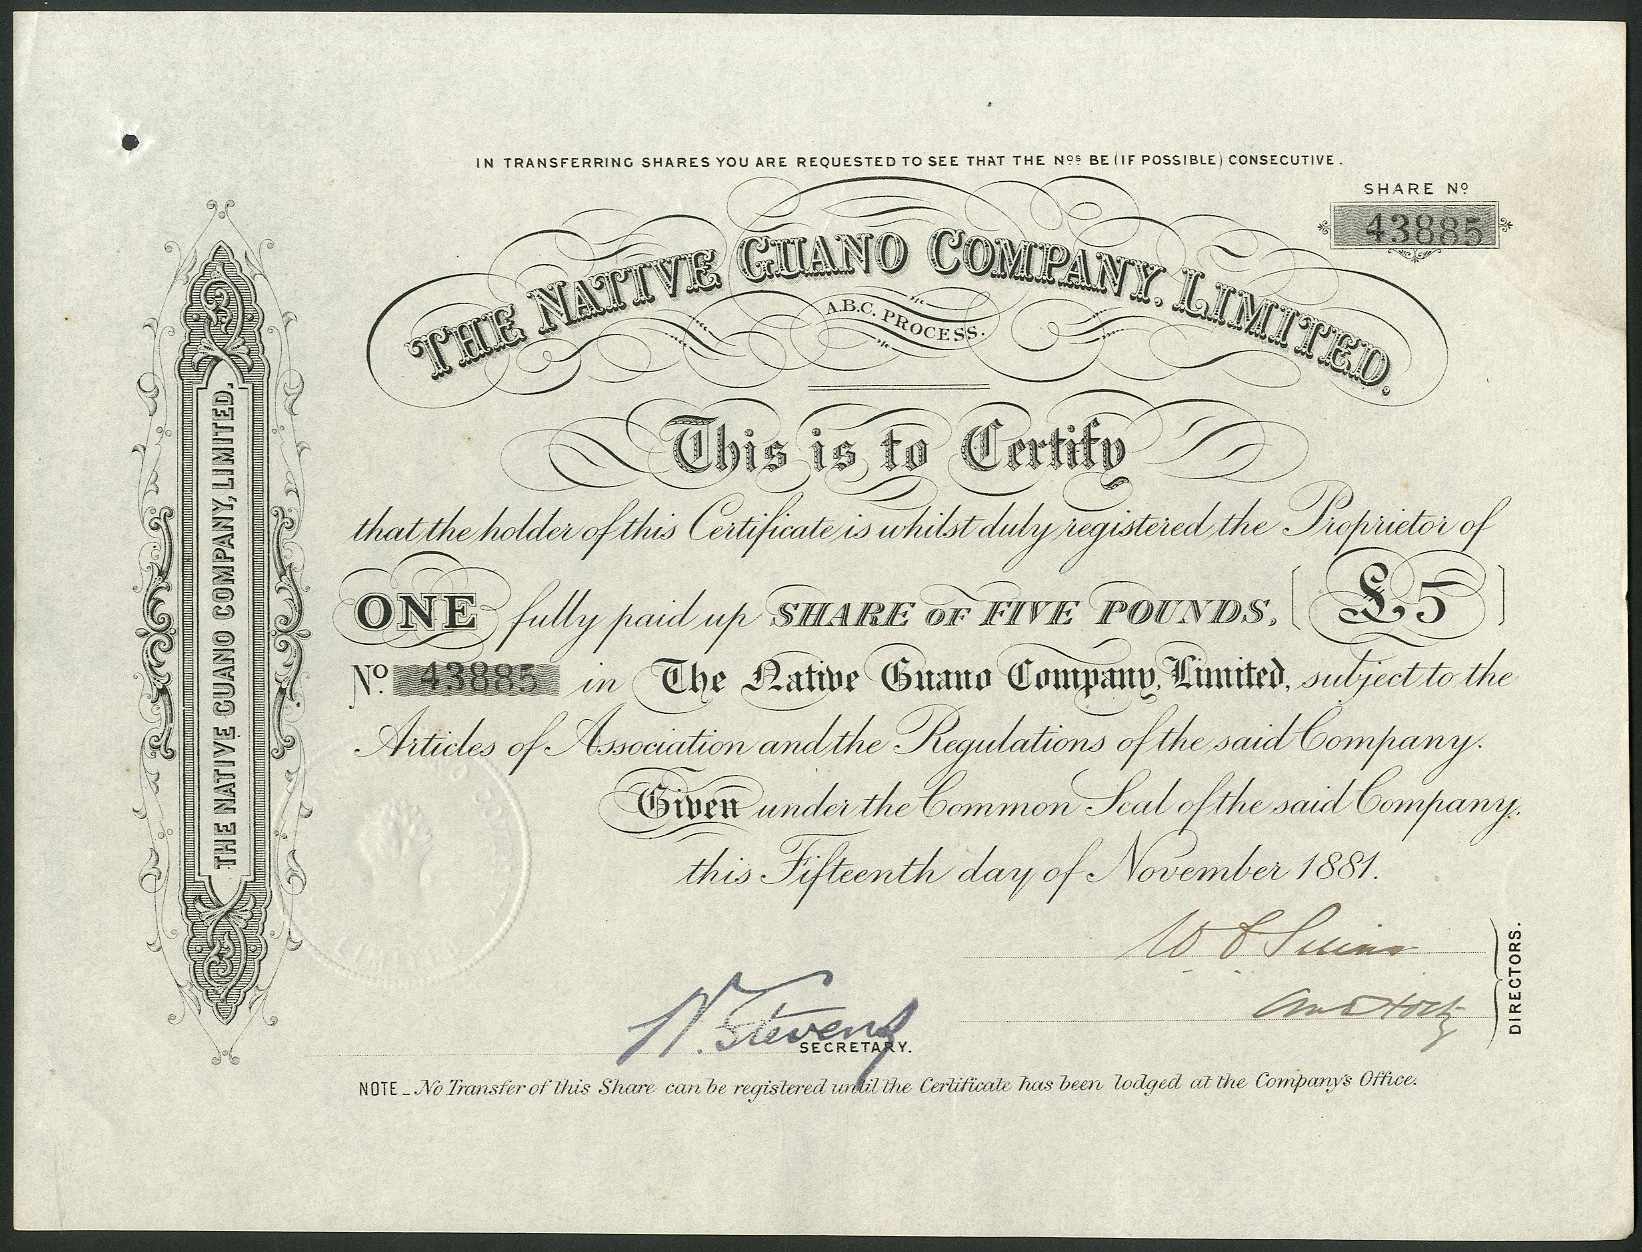 IN TRANSFERRING SHARES YOU ARE REQUESTED TO SEE THAT THE Nos BE (IF POSSIBLE) CONSECUTIVE.
SHARE No
43885
THE NATIVE GUANO COMPANY, LIMITED.
A.B.C. PROCESS.
This is to Certify
that the holder of this Certificate is whilst duly registered the Proprietor of
ONE fully paid up SHARE OF FIVE POUNDS, [£5]
No. 43885 in The Native Guano Company, Limited, subject to the
Articles of Association and the Regulations of the said Company.
Given under the Common Seal of the said Company,
this Fifteenth day of November 1881.
DIRECTORS.
N. Stevens
SECRETARY.
NOTE _ No Transfer of this Share can be registered until the Certificate has been lodged at the Company's Office.
THE NATIVE GUANO COMPANY, LIMITED.